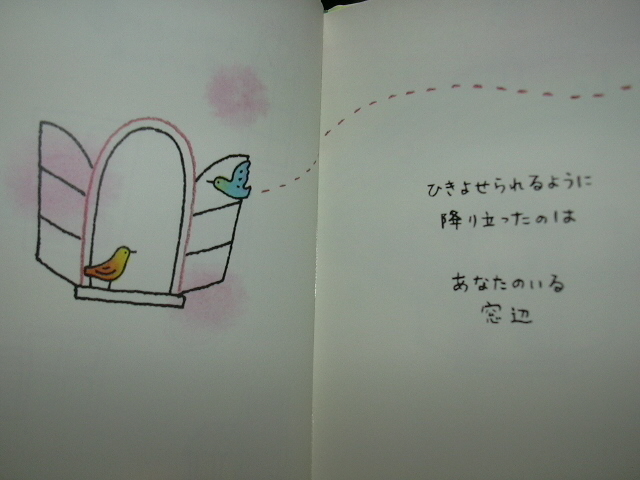 ひきよせられるように
降り立ったのは
あなたのいる
窓辺